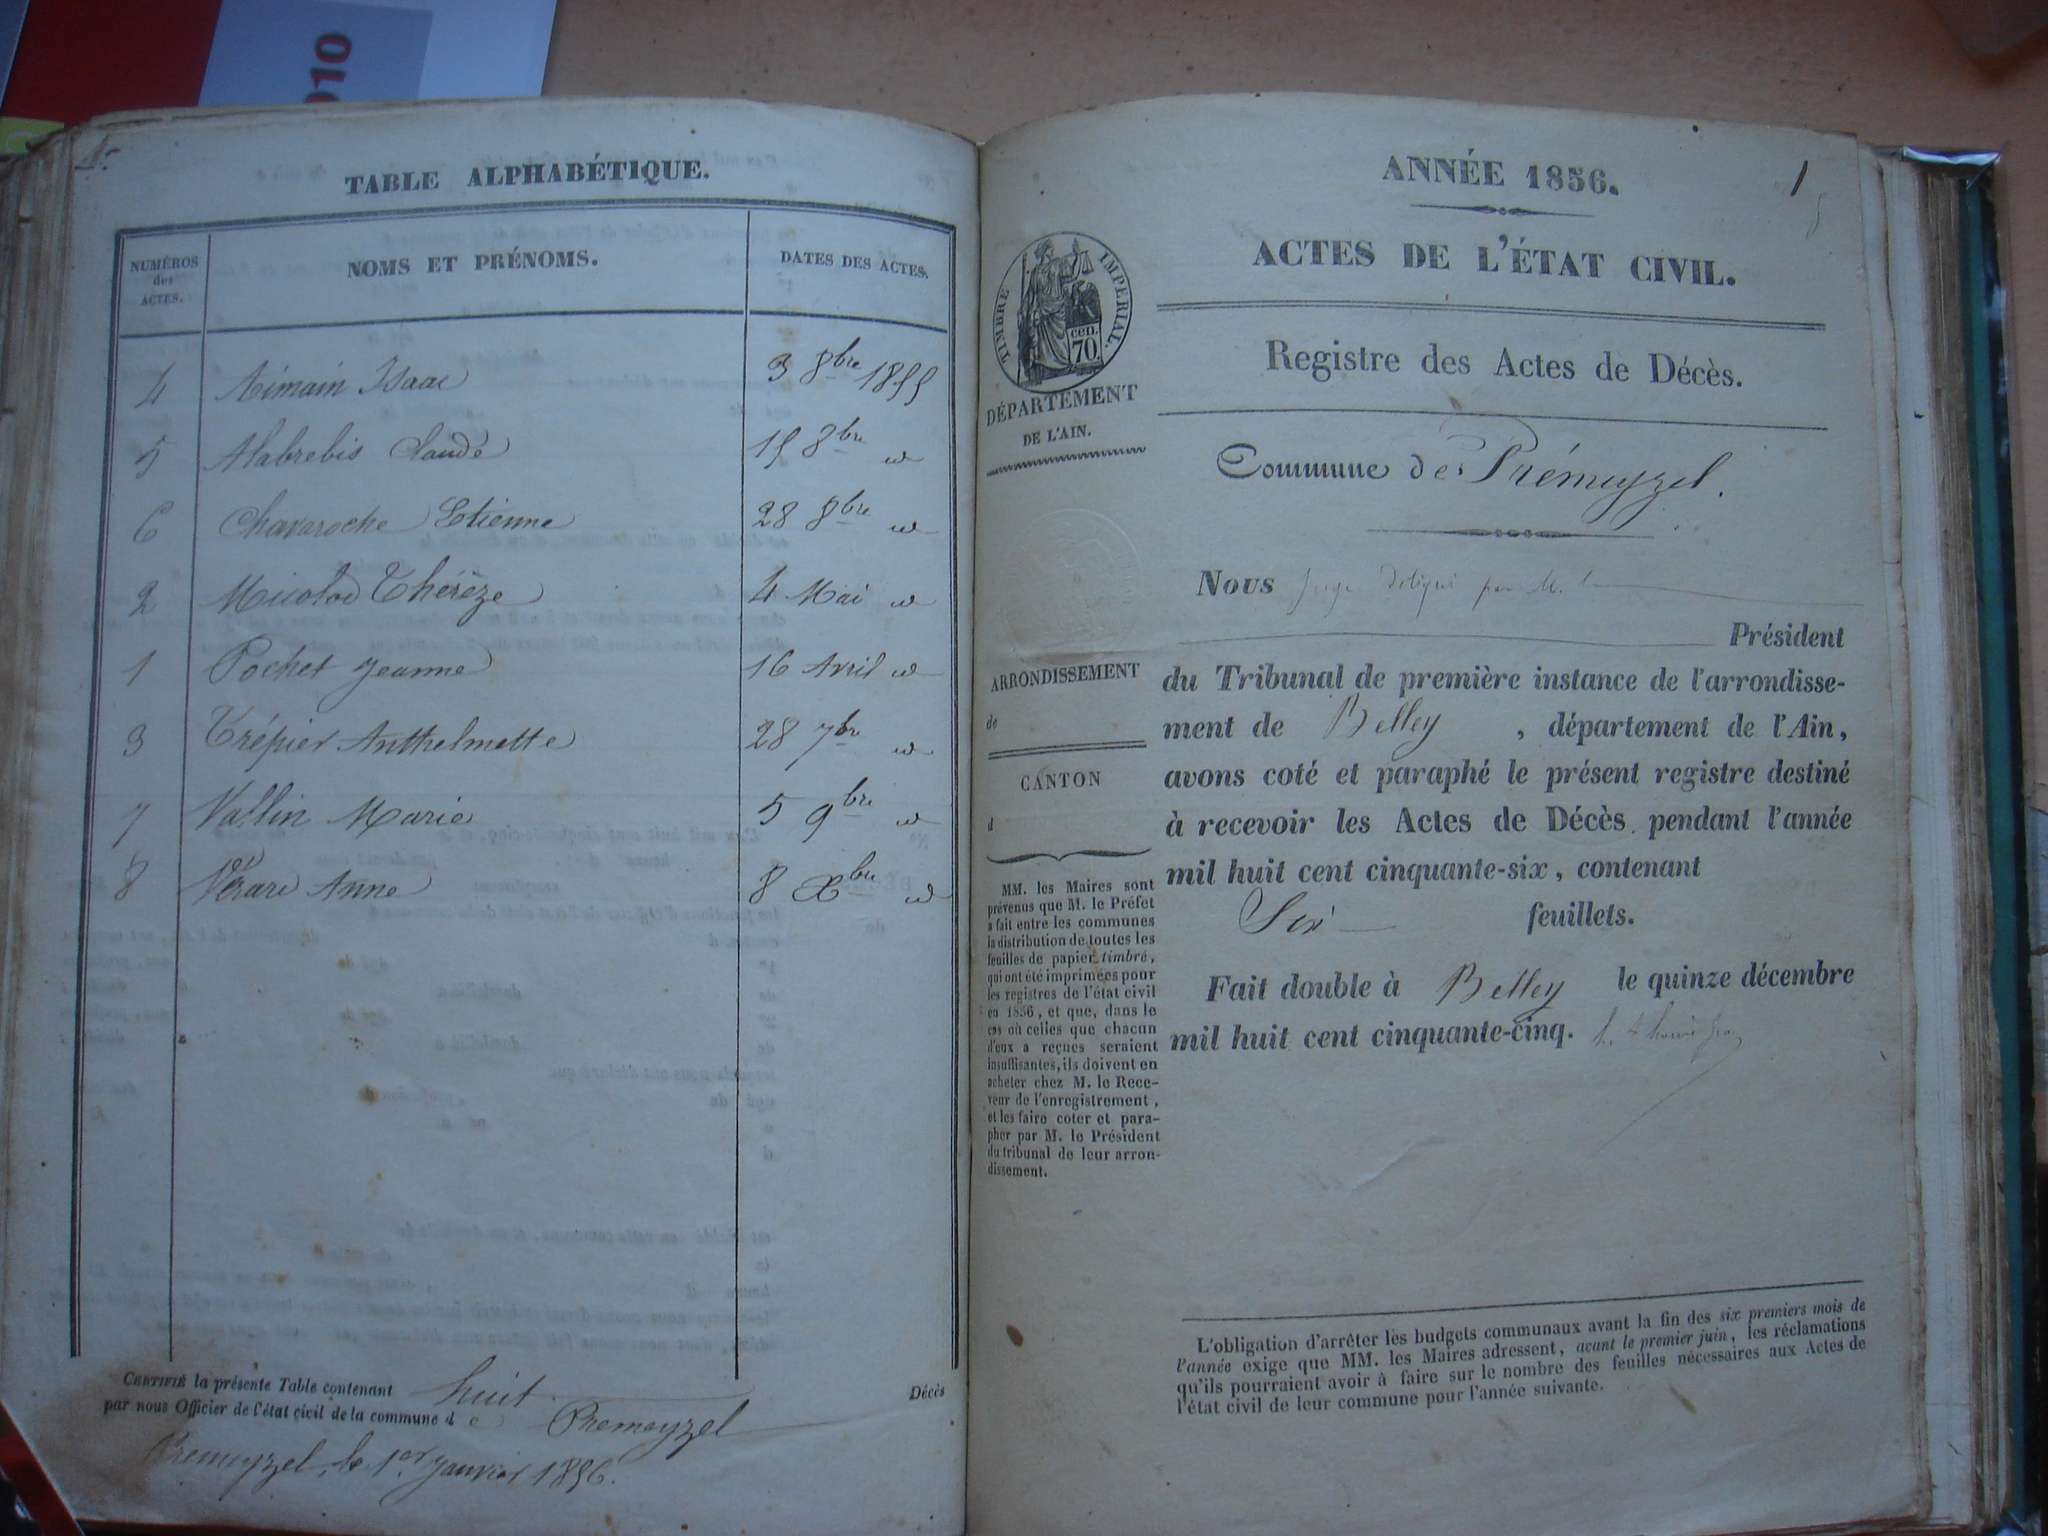 010
TABLE ALPHABÉTIQUE.
NUMÉROS
des
ACTES.
NOMS ET PRÉNOMS.
DATES DES ACTES.
4 Aimain Isaac 3 8bre 1855
5 Alabrebis Claude 15 8bre
6 Chavaroche Etienne 28 8bre
2 Micolod Thérèze 4 Mai
1 Pochet Jeanne 16 Avril
3 Trépier Anthelmette 28 7bre
7 Vallin Marie 5 9bre
8 Anne 8 Xbre
CERTIFIÉ la présente Table contenant huit Décès
par nous Officier de l'état civil de la commune de Premeyzel
Premeyzel, le 1er Janvier 1856.
1
ANNÉE 1856.
ACTES DE L'ÉTAT CIVIL.
TIMBRE IMPÉRIAL.
cen.
70.
DÉPARTEMENT
DE L'AIN.
Registre des Actes de Décès.
Commune de Prémeyzel.
ARRONDISSEMENT
de
CANTON
d
MM. les Maires sont
prévenus que M. le Préfet
a fait entre les communes
la distribution de toutes les
feuilles de papier timbré,
qui ont été imprimées pour
les registres de l'état civil
en 1856, et que, dans le
cas où celles que chacun
d'eux a reçues seraient
insuffisantes, ils doivent en
acheter chez M. le Rece-
veur de l'enregistrement,
et les faire coter et para-
pher par M. le Président
du tribunal de leur arron-
dissement.
Nous juge délégué par M. le
Président
du Tribunal de première instance de l'arrondisse-
ment de Belley, département de l'Ain,
avons coté et paraphé le présent registre destiné
à recevoir les Actes de Décès pendant l'année
mil huit cent cinquante-six, contenant
Six feuillets.
Fait double à Belley le quinze décembre
mil huit cent cinquante-cinq.
L'obligation d'arrêter les budgets communaux avant la fin des six premiers mois de
l'année exige que MM. les Maires adressent, avant le premier juin, les réclamations
qu'ils pourraient avoir à faire sur le nombre des feuilles nécessaires aux Actes de
l'état civil de leur commune pour l'année suivante.